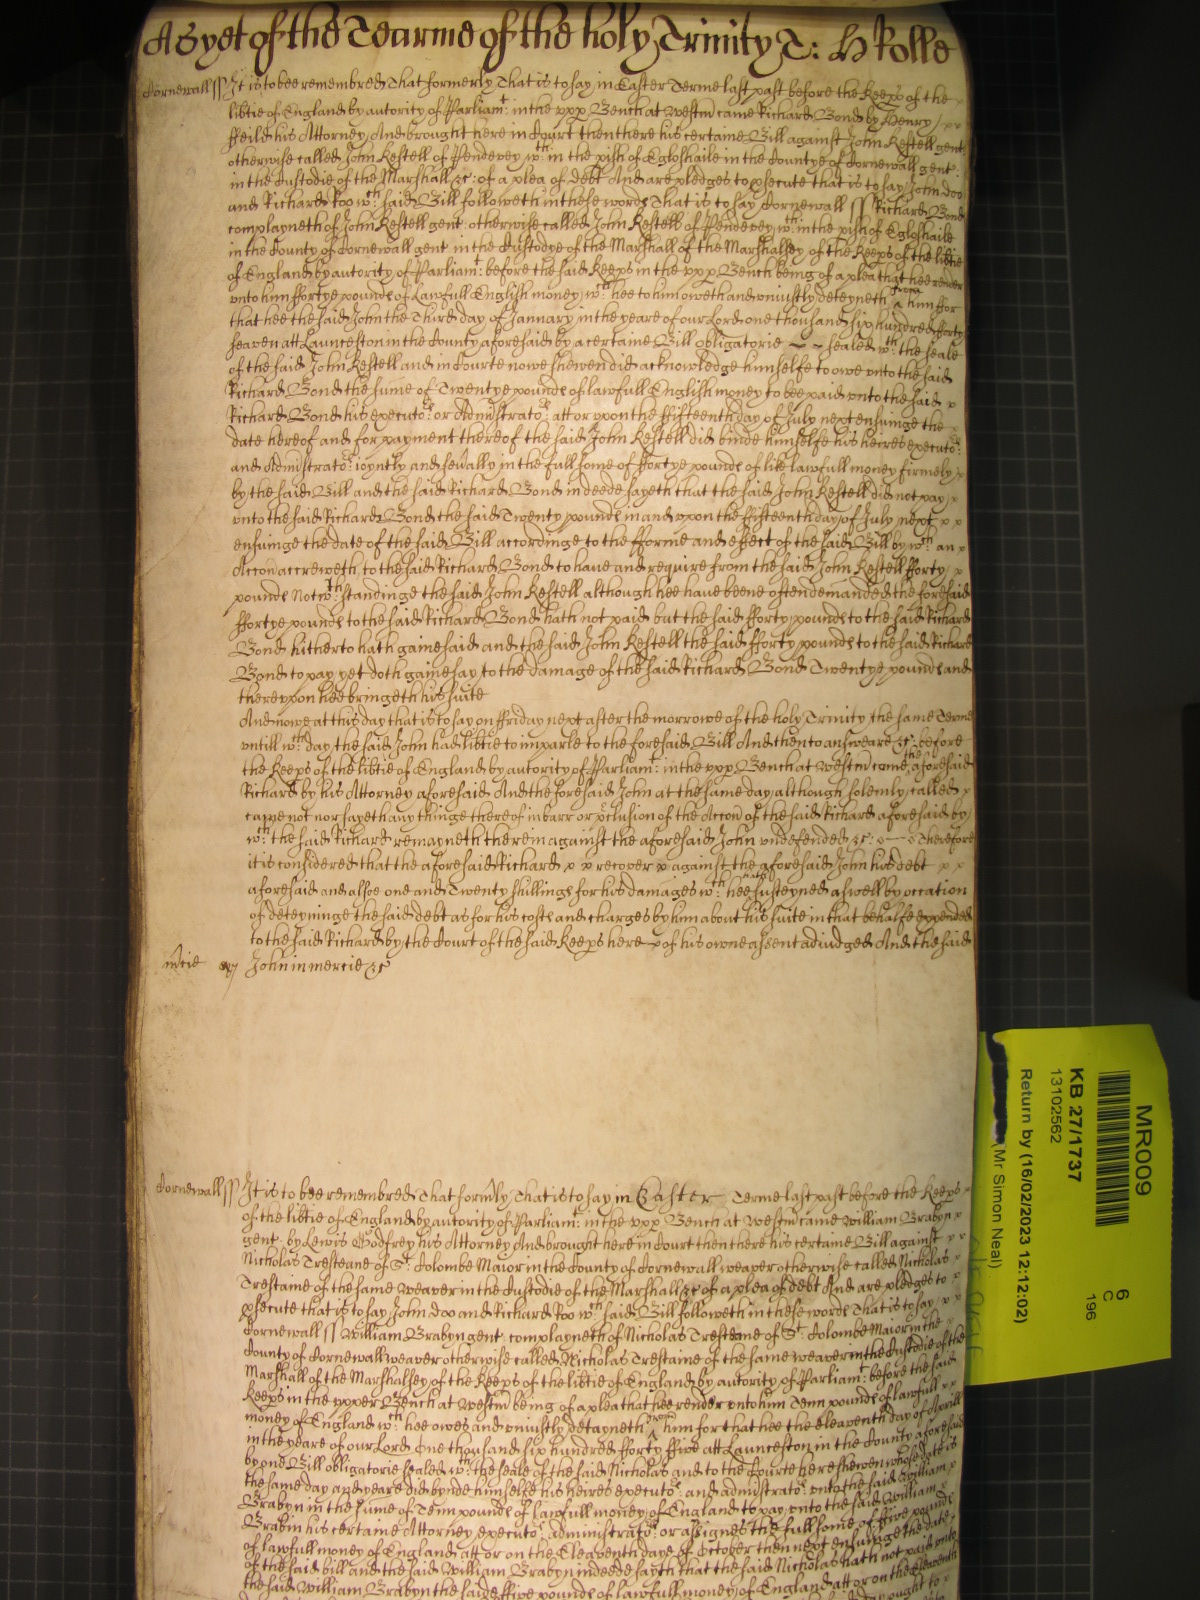 As yet of the Tearme of the holy Trinity T: H Rolle
Cornewall ss It is to bee remembred That formerly That is to say in Easter Terme last past before the Keeps of the
libtie of England by autority of Parliamt: in the vpp Bench at Westm came Richard Bond by Henry
ffeild his Attorney And brought here in Court then there his certaine Bill against John Kestell gent
otherwise called John Kestell of Pendevey wth: in the pish of Egloshaile in the Countye of Cornewall gent:
in the Custodie of the Marshall &c: of a plea of debt And are pledges to psecute that is to say John doo
and Richard Roo wch said Bill followeth in these words That is to say Cornewall ss Richard Bond
complayneth of John Kestell gent: otherwise called John Kestell of Pendevey wth: in the pish of Egloshaile
in the County of Cornewall gent in the Custodye of the Marshall of the Marshallsey of the Keeps of the libtie
of England by autority of Parliamt: before the said Keeps in the vpp Bench being of a plea that hee render
vnto him ffortye pounds of Lawfull English money wch: hee to him oweth and vniustly deteyneth from him ffor
that hee the said John the Third day of January in the yeare of our Lord one thousand six hundred fforty
seaven att Launceston in the County aforesaid by a certaine Bill obligatorie sealed wth: the seale
of the said John Kestell and in Courte nowe shewen did acknowledge himselfe to owe vnto the said
Richard Bond the sume of Twentye pounds of lawfull English money to bee paid vnto the said
Richard Bond his executors: or Administrators: att or vpon the ffifteenth day of July next ensuinge the
date hereof and for payment thereof the said John Kestell did binde himselfe his heires executors:
and Administrators: ioyntly and sevally in the full some of ffortye pounds of like lawfull money firmely
by the said Bill and the said Richard Bond in deede sayeth that the said John Kestell did not pay
vnto the said Richard Bond the said Twenty pounds in and vpon the ffifteenth day of July next
ensuinge the date of the said Bill accordinge to the fforme and effect of the said Bill by wch: an
Accon accreweth to the said Richard Bond to haue and require from the said John Kestell fforty
pounds Notwth:standinge the said John Kestell although hee have beene often demanded the foresaid
ffortye pounds to the said Richard Bond hath not paid but the said fforty pounds to the said Richard
Bond hitherto hath gainesaid and the said John Kestell the said fforty pounds to the said Richard
Bond to pay yet doth gainesay to the damage of the said Richard Bond Twentye pounds and
therevpon hee bringeth his suite
And nowe at this day that is to say on ffriday next after the morrowe of the holy Trinity the same Terme
vntill wch: day the said John had libtie to imparle to the foresaid Bill And then to answeare &c: before
the Keeps of the libtie of England by autority of Parliamt: in the vpp Bench at Westm came the aforesaid
Richard by his Attorney aforesaid And the foresaid John at the same day although solemly called
came not nor sayeth any thinge thereof in barr or pclusion of the Accon of the said Richard aforesaid by
wch: the said Richard remayneth therein against the aforesaid John vndefended &c: Therefore
it is considered that the aforesaid Richard recover against the aforesaid John his debt
aforesaid and alsoe one and Twenty shillings for his damages wch: hee hath susteyned aswell by occation
of deteyninge the said debt as for his costs and charges by him about his suite in that behalfe expended
to the said Richard by the Court of the said Keeps here of his owne assent adiudged And the said
mcie John in mercie &c
Cornewall ss It is to bee remembred That formly That is to say in Easter Terme last past before the Keeps
of the libtie of England by autority of Parliamt: in the vpp Bench at Westm came William Brabyn
gent: by Lewis Godfrey his Attorney And brought here in Court then there his certaine Bill against
Nicholas Tresteane of St: Colombe Maior in the County of Cornewall weaver otherwise called Nicholas
Trestaine of the same Weaver in the Custodie of the Marshall &c of a plea of debt And are pledges to
psecute that is to say John doo and Richard Roo wch said Bill followeth in these words That is to say
Cornewall ss William Brabyn gent: complayneth of Nicholas Tresteane of St: Colombe Maior in the
County of Cornewall weaver otherwise called Nicholas Trestaine of the same weaver in the Custodie of the
Marshall of the Marshalsey of the Keeps of the libtie of England by autority of Parliamt: before the said
Keeps in the vpper Bench at Westm being of a plea that hee render vnto him Tenn pounds of lawfull
money of England wch: hee owes and vniustly detayneth from him for that hee the eleaventh day of Aprill
in the yeare of our Lord One thousand six hundred fforty ffive att Launceston in the County aforesaid
by one Bill obligatorie sealed wth: the seale of the said Nicholas and to the Courte here shewen whose date is
the same day and yeare did bynde himselfe his heires executors: and administrators: vnto the said William
Brabyn in the sume of Tenn pounds of lawfull money of England to pay vnto the said William
Brabin his certaine Attorney executors: administrators: or assignes the full some of ffive pounds
of lawfull money of England att or on the Eleaventh daye of October then next ensuinge the date
of the said bill and the said William Brabyn indeede sayth that the said Nicholas hath not paid vnto
the said William Brabyn the said ffive pounds of lawfull money of England att or on the Eleaventh
MR009
6
C
196
KB 27/1737
13102562
Return by (16/02/2023 12:12:02)
(Mr Simon Neal)